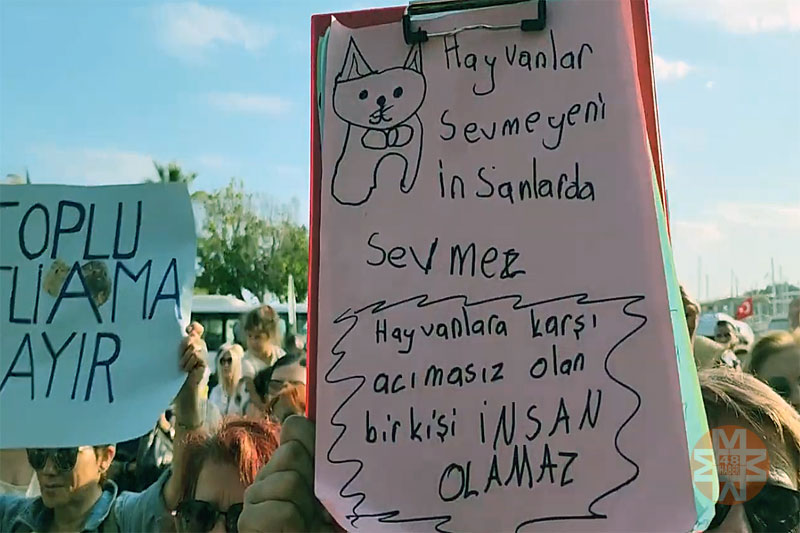 TOPLU
TLİAMA
AYIR
Hayvanlar
sevmeyeni
insanlarda
sevmez
Hayvanlara karşı
acımasız olan
bir kişi İNSAN
OLAMAZ
48